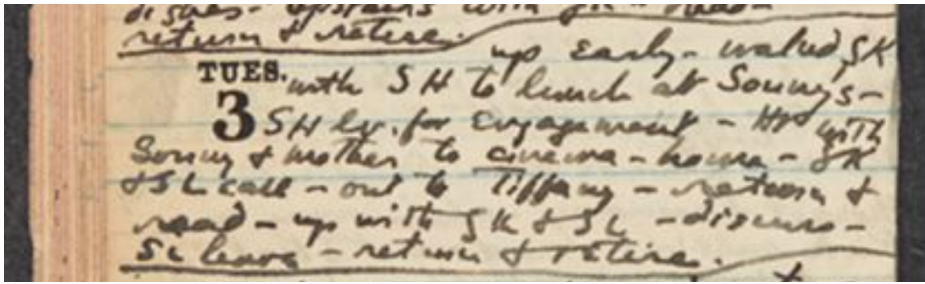 return & retire. up early - waked JK
TUES. with SH to lunch at Sonny's -
3 SH lv. for engagement - HP with
Sonny & mother to cinema - home - JK
& SL call - out to Tiffany - return &
read - up with JK & SL - discuss -
SL leave - return & retire.